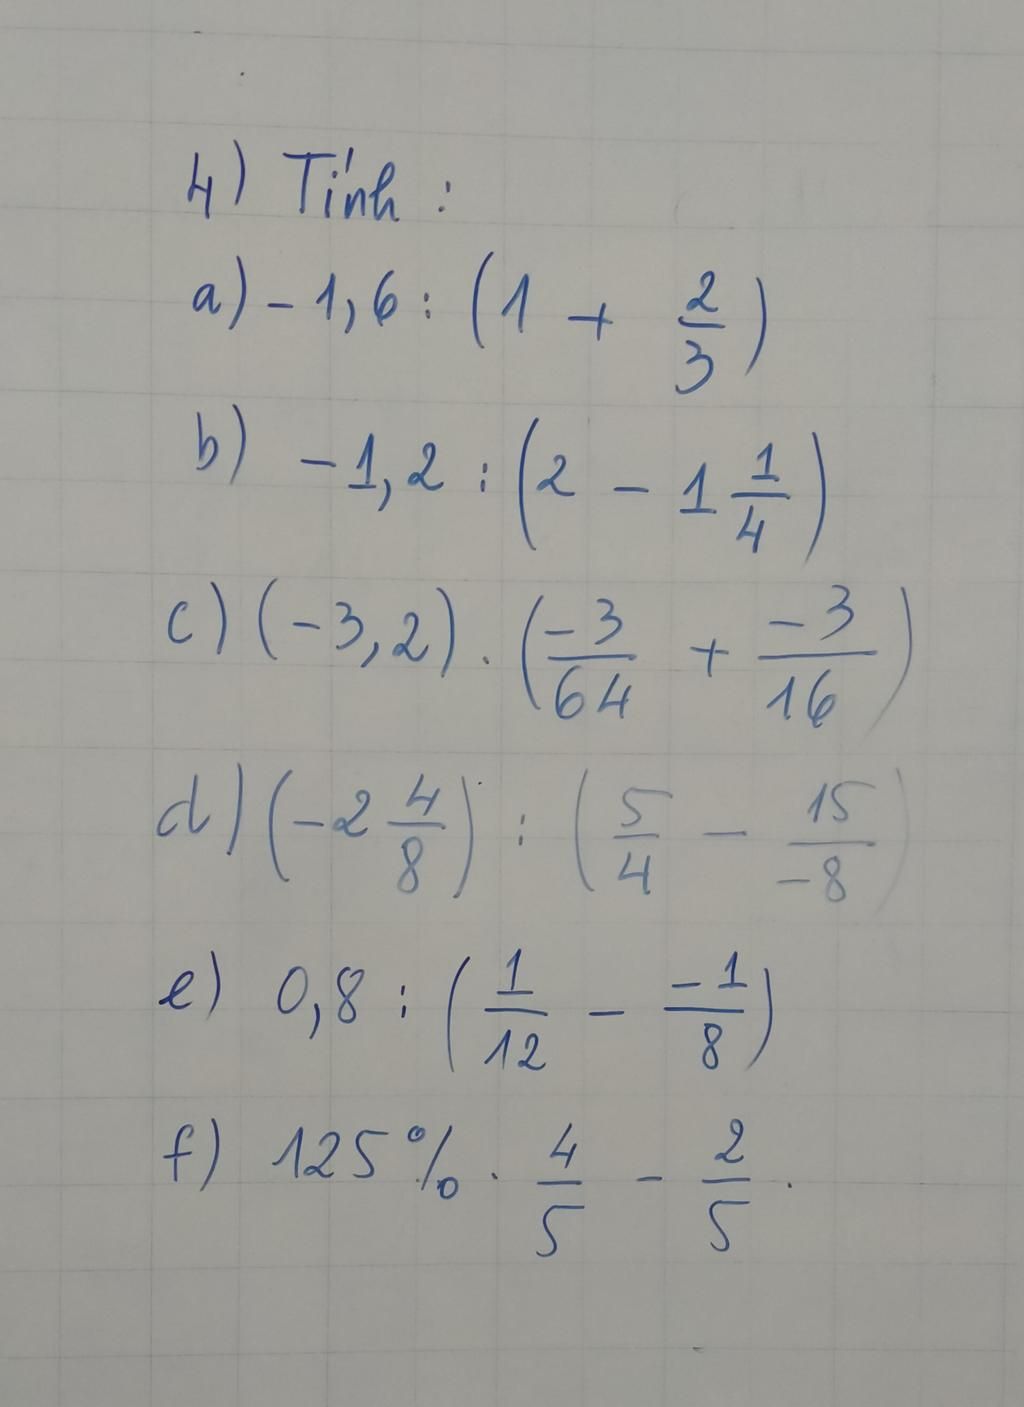 4) Tính :
a) - 1,6 : (1 + 2/3)
b) - 1,2 : (2 - 1 1/4)
c) (-3,2) . (-3/64 + -3/16)
d) (-2 4/8) : (5/4 - 15/-8)
e) 0,8 : (1/12 - -1/8)
f) 125% . 4/5 - 2/5 .